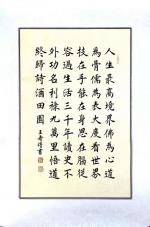 人生最高境界佛為心道
為骨儒為表大度看世界
技在手能在身思在腦從
容過生活三千年讀史不
外功名利祿九萬里悟道
終歸詩酒田園